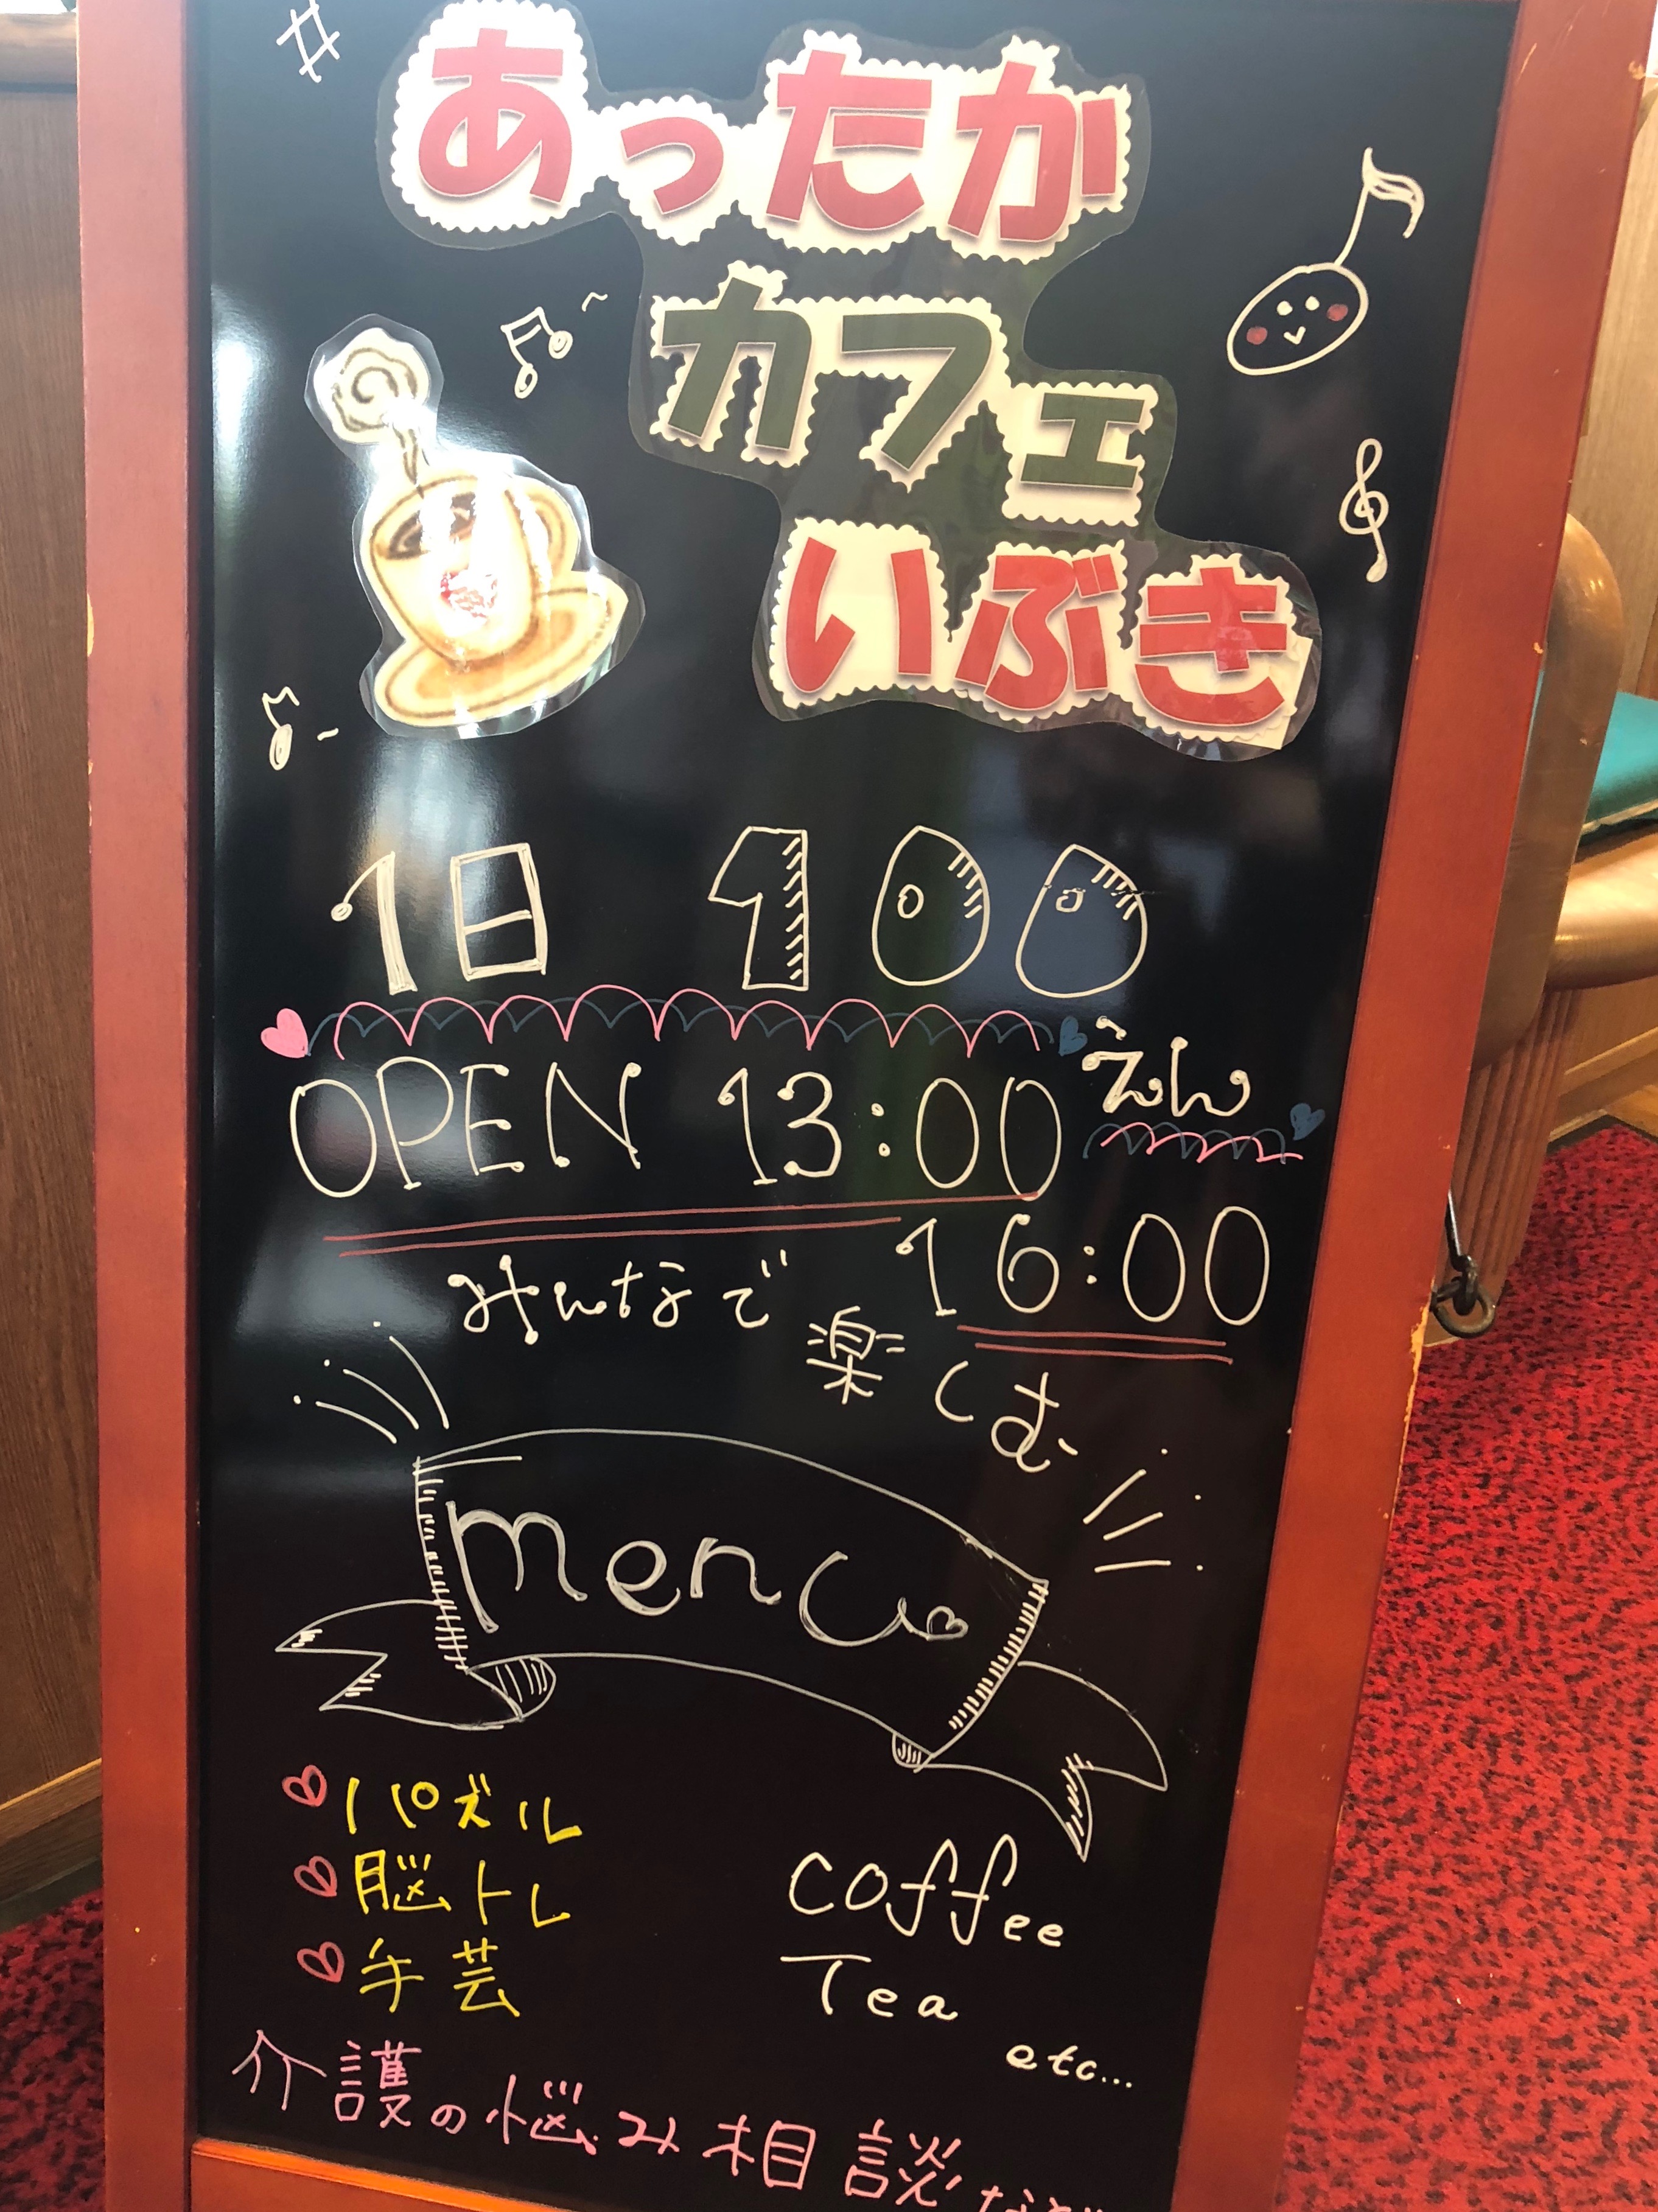 あったか
カフェ
いぶき
1日 100
えん
OPEN 13:00
16:00
みんなで
楽しむ
menu
パズル
脳トレ
手芸
coffee
Tea
etc...
介護の悩み相談など